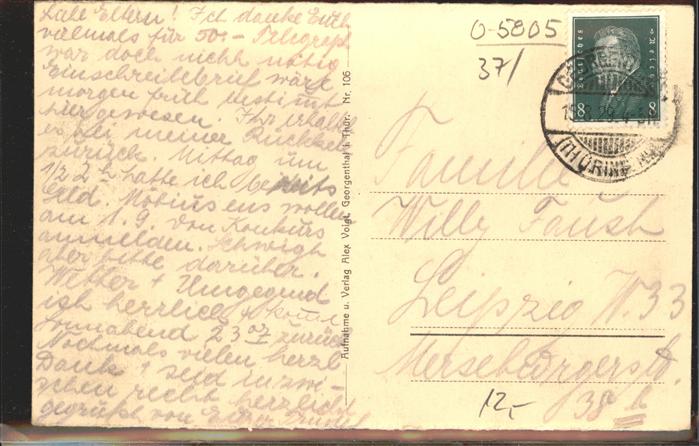 Liebe Eltern! Ich danke Euch
vielmals für 50,- Telegraph
war doch nicht nötig
Einschreibebrief wäre
morgen früh bestimmt
hier gewesen. Ihr erhaltet
es bei meiner Rückkehr
zurück. Mittag um
1/2 2 h hatte ich bereits
Geld. Möbius ens wollen
am 1.9 den Konkurs
anmelden. Schweigt
aber bitte darüber.
Wetter + Umgegend
ist herrlich
Sonnabend 23 07 zurück
Nochmals vielen herzl
Dank + seid inzwi-
schen recht herzlichst
gegrüßt von
Aufnahme u. Verlag Alex Voigt, Georgenthal i. Thür. Nr. 106
0-5805
37/
Deutsches Reich
8 8
(THÜRING
Familie
Willy Faust
Leipzig W. 33
Merseburgerstr.
38 b
12,-